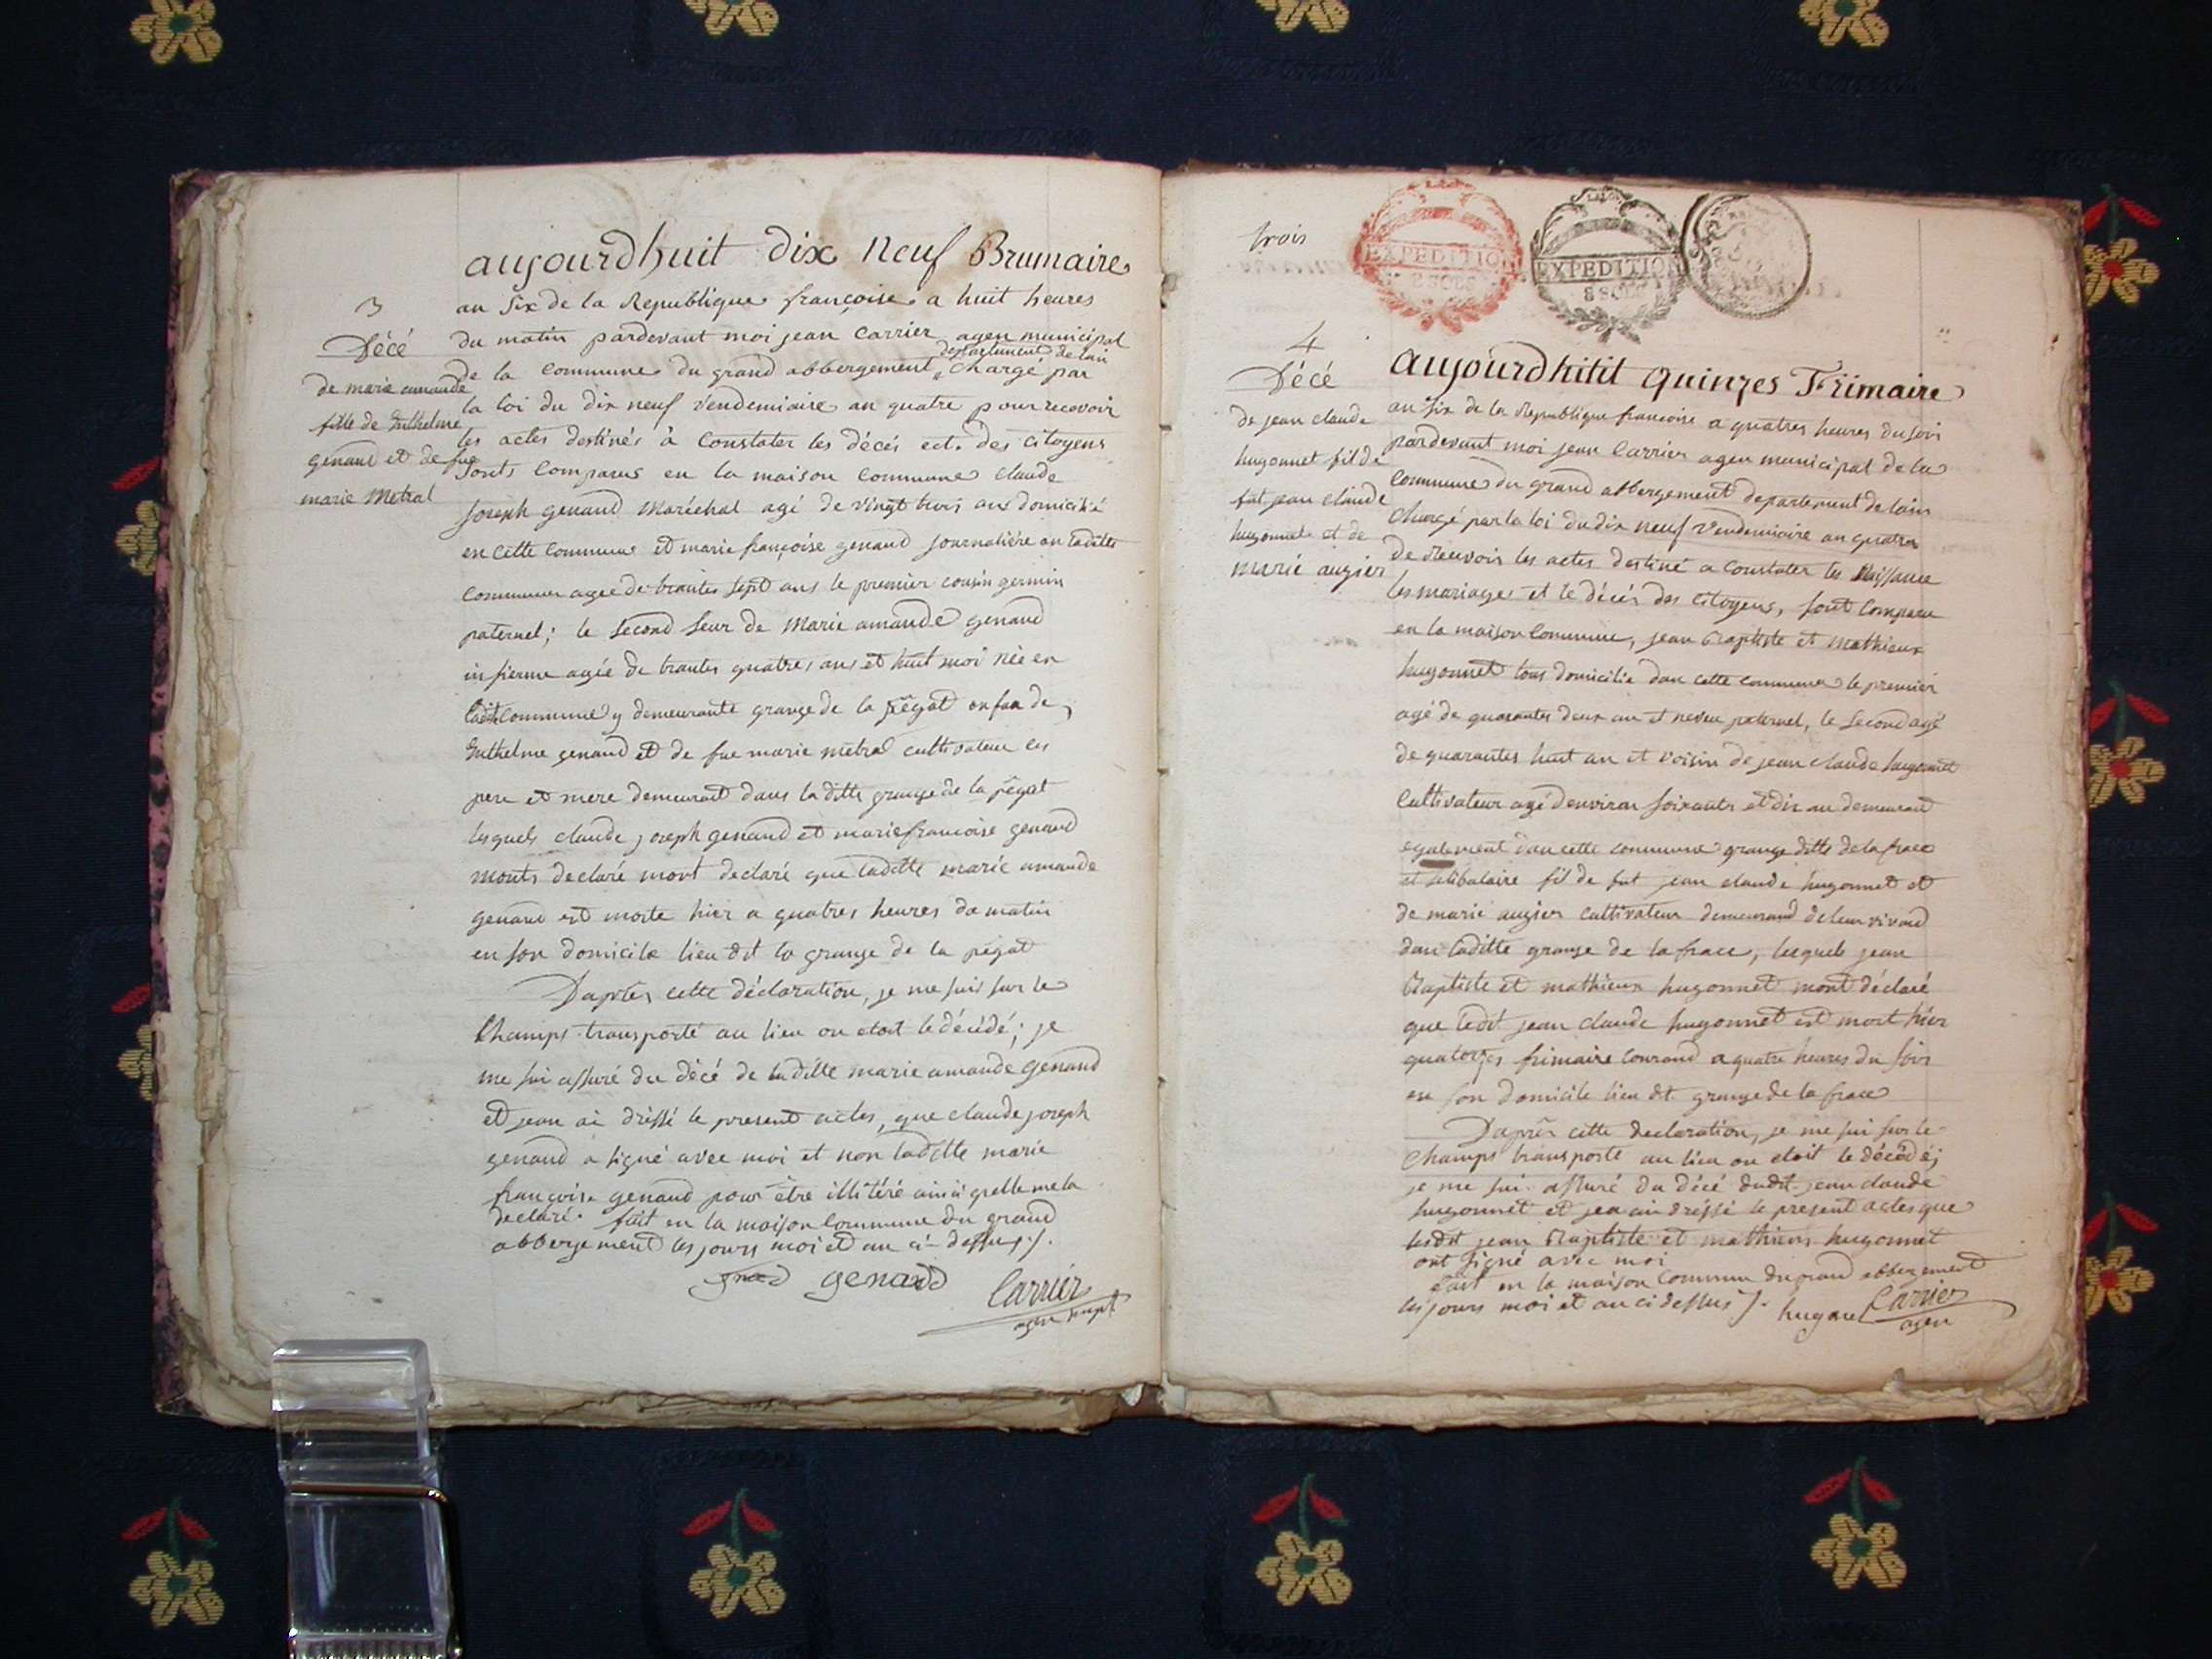 3
Décé
de marie amande
fille de Inthelme
genand et de fue
marie Metral
aujourdhuit dix neuf Brumaire
an Six de la Republique françoise a huit heures
du matin pardevant moi jean Carrier agen municipal
departement de lain
de la Commune du grand abbergement, Chargé par
la loi du dix neuf vendemiaire an quatre pour recevoir
les actes destinés à Constater les décés ect. des Citoyens
Sonts Comparus en la maison Commune Claude
Joseph genand Maréchal agé de vingt trois ans domicilié
en cette Commune et marie françoise genand journalière en laditte
Commune agee de trantes sept ans le premier cousin germin
paternel; le Second seur de Marie amande genand
infierme agée de trantes quatres ans et huit moi née en
ladit Commune y demeurante grange de la pégat enfan de
Inthelme genand et de fue marie métral cultivateur ces
pere et mere demeurant dans laditte grange de la pégat
lesquels claude joseph genand et marie francoise genand
monts declaré mont declaré que laditte marie amande
genand est morte hier a quatres heures du matin
en son domicile lieu dit la grange de la pégat
Daprles cette déclaration, je me suis sur le
Champs transporté au lieu ou etoit le décédé; je
me sui assuré du décé de laditte marie amande genand
et jean ai dressé le present actes, que claude joseph
genand a signé avec moi et non laditte marie
françoise genand pour être illitéré ainsi quelle me la
declaré. fait en la maison Commune du grand
abbergement les jours moi et an ci-dessus ./.
genand
Carrier
agen mupl
trois
EXPEDITION
8 SOLS
EXPEDITION
8 SOLS
4
Décé
de jean claude
hugonnet fil de
fut jean claude
hugonnet et de
marie augier
aujourdhitit quinzes Frimaire
an Six de la Republique francoise a quatres heures du soir
pardevant moi jean Carrier agen municipal de la
Commune du grand abbergement departement de lain
Chargé par la loi du dix neuf vendemiaire an quatre
de recevoir les actes destiné a constater les Naissance
les mariages et le décés des Citoyens, sont Comparu
en la maison Commune, jean Baptiste et mathieux
hugonnet tous domicilié dan cette commune le premier
agé de quarantes deux an et neveu paternel, le second agé
de quarantes huit an et voisin de jean claude hugonnet
Cultivateur agé denviron soixante et dix an demeurant
egalement dan cette commune grange ditte de la frace
et selibataire fil de fut jean claude hugonnet et
de marie augier cultivateur demeurand de leur vivand
dan laditte grange de la frace, lesquels jean
Baptiste et mathieux hugonnet mont déclaré
que ledit jean claude hugonnet est mort hier
quatorzes frimaire Courand a quatre heures du soir
en son domicile lieu dit grange de la frace
Daprês cette declaration, je me sui sur le
Champs transporté au lieu ou etoit le décédé;
je me sui assuré du décé dudit jean claude
hugonnet et jean ai dréssé le present actes que
lesdit jean Baptiste et mathieux hugonnet
ont signé avec moi
fait en la maison Commun du grand abbergement
les jours moi et an ci dessus ./.
hugonet
Carrier
agen